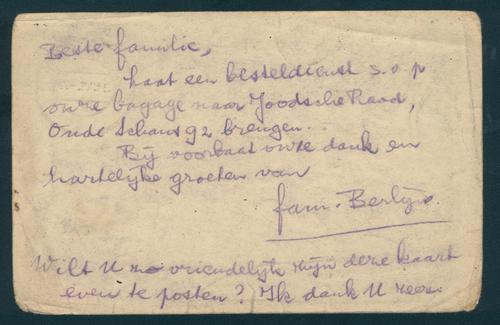 Beste familie,
laat een besteldienst s.v.p
onze bagage naar Joodsche Raad,
Oude Schans 92 brengen.
Bij voorbaat onze dank en
hartelijke groeten van
fam. Berlijn.
Wilt U zo vriendelijk zijn deze kaart
even te posten? Ik dank U zeer.